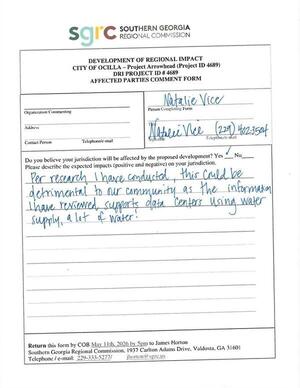 sgrc SOUTHERN GEORGIA
REGIONAL COMMISSION
DEVELOPMENT OF REGIONAL IMPACT
CITY OF OCILLA – Project Arrowhead (Project ID 4689)
DRI PROJECT ID # 4689
AFFECTED PARTIES COMMENT FORM
Natalie Vice
Organization Commenting
Person Completing Form
Address
Natalie Vice (229)
Contact Person Telephone/e-mail
Signature Telephone/e-mail
Do you believe your jurisdiction will be affected by the proposed development? Yes ✓ No
Please describe the expected impacts (positive and negative) on your jurisdiction.
Per research I have conducted, this could be
detrimental to our community as the information
I have reviewed supports data centers using water
supply, a lot of water!
Return this form by COB May 11th, 2026 by 5pm to James Horton
Southern Georgia Regional Commission, 1937 Carlton Adams Drive, Valdosta, GA 31601
Telephone / e-mail: 229-333-5277/ jhorton@sgrc.us